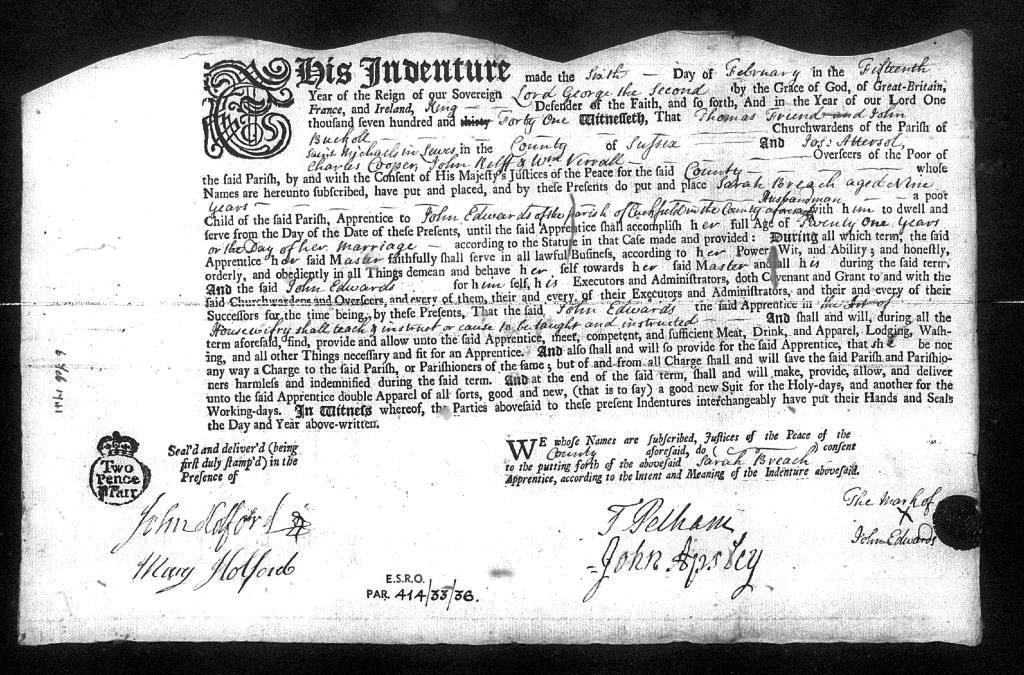 This Indenture made the Sixth — Day of February in the Fifteenth
Year of the Reign of our Sovereign Lord George the Second by the Grace of God, of Great-Britain,
France, and Ireland, King — Defender of the Faith, and so forth, And in the Year of our Lord One
thousand seven hundred and thirty Forty One Witnesseth, That Thomas Friend and John
Churchwardens of the Parish of
Saint Michaels in Lewes, in the County of Sussex — And Jos: Attersol,
Charles Cooper, John Rolff & Wm Verrall — Overseers of the Poor of
the said Parish, by and with the Consent of His Majesty's Justices of the Peace for the said County — whose
Names are hereunto subscribed, have put and placed, and by these Presents do put and place Sarah Breach aged Nine
Years — a poor
Husbandman
Child of the said Parish, Apprentice to John Edwards of the parish of Cuckfield in the County aforesaid with him to dwell and
serve from the Day of the Date of these Presents, until the said Apprentice shall accomplish her full Age of Twenty One Years
or the Day of her Marriage — according to the Statute in that Case made and provided: During all which term, the said
Apprentice her said Master faithfully shall serve in all lawful Business, according to her Power, Wit, and Ability; and honestly,
orderly, and obediently in all Things demean and behave her self towards her said Master and all his during the said term.
And the said John Edwards for him self, his Executors and Administrators, doth Covenant and Grant to and with the
said Churchwardens and Overseers, and every of them, their and every of their Executors and Administrators, and their and every of their
Successors for the time being, by these Presents, That the said John Edwards the said Apprentice in the Art of
Housewifry shall teach & instruct or cause to be taught and instructed — And shall and will, during all the
term aforesaid, find, provide and allow unto the said Apprentice, meet, competent, and sufficient Meat, Drink, and Apparel, Lodging, Wash-
ing, and all other Things necessary and fit for an Apprentice. And also shall and will so provide for the said Apprentice, that she be not
any way a Charge to the said Parish, or Parishioners of the same; but of and from all Charge shall and will save the said Parish and Parishio-
ners harmless and indemnified during the said term. And at the end of the said term, shall and will make, provide, allow, and deliver
unto the said Apprentice double Apparel of all sorts, good and new, (that is to say) a good new Suit for the Holy-days, and another for the
Working-days. In Witness whereof, the Parties abovesaid to these present Indentures interchangeably have put their Hands and Seals
the Day and Year above-written.
Two
Pence
Parr
Seal'd and deliver'd (being
first duly stamp'd) in the
Presence of
John Holford
Mary Holford
WE whose Names are subscribed, Justices of the Peace of the
County aforesaid, do consent
to the putting forth of the abovesaid Sarah Breach
Apprentice, according to the Intent and Meaning of the Indenture abovesaid.
T Pelham
John Apsley
The Mark of
X
John Edwards
E.S.R.O.
PAR. 414/33/36.